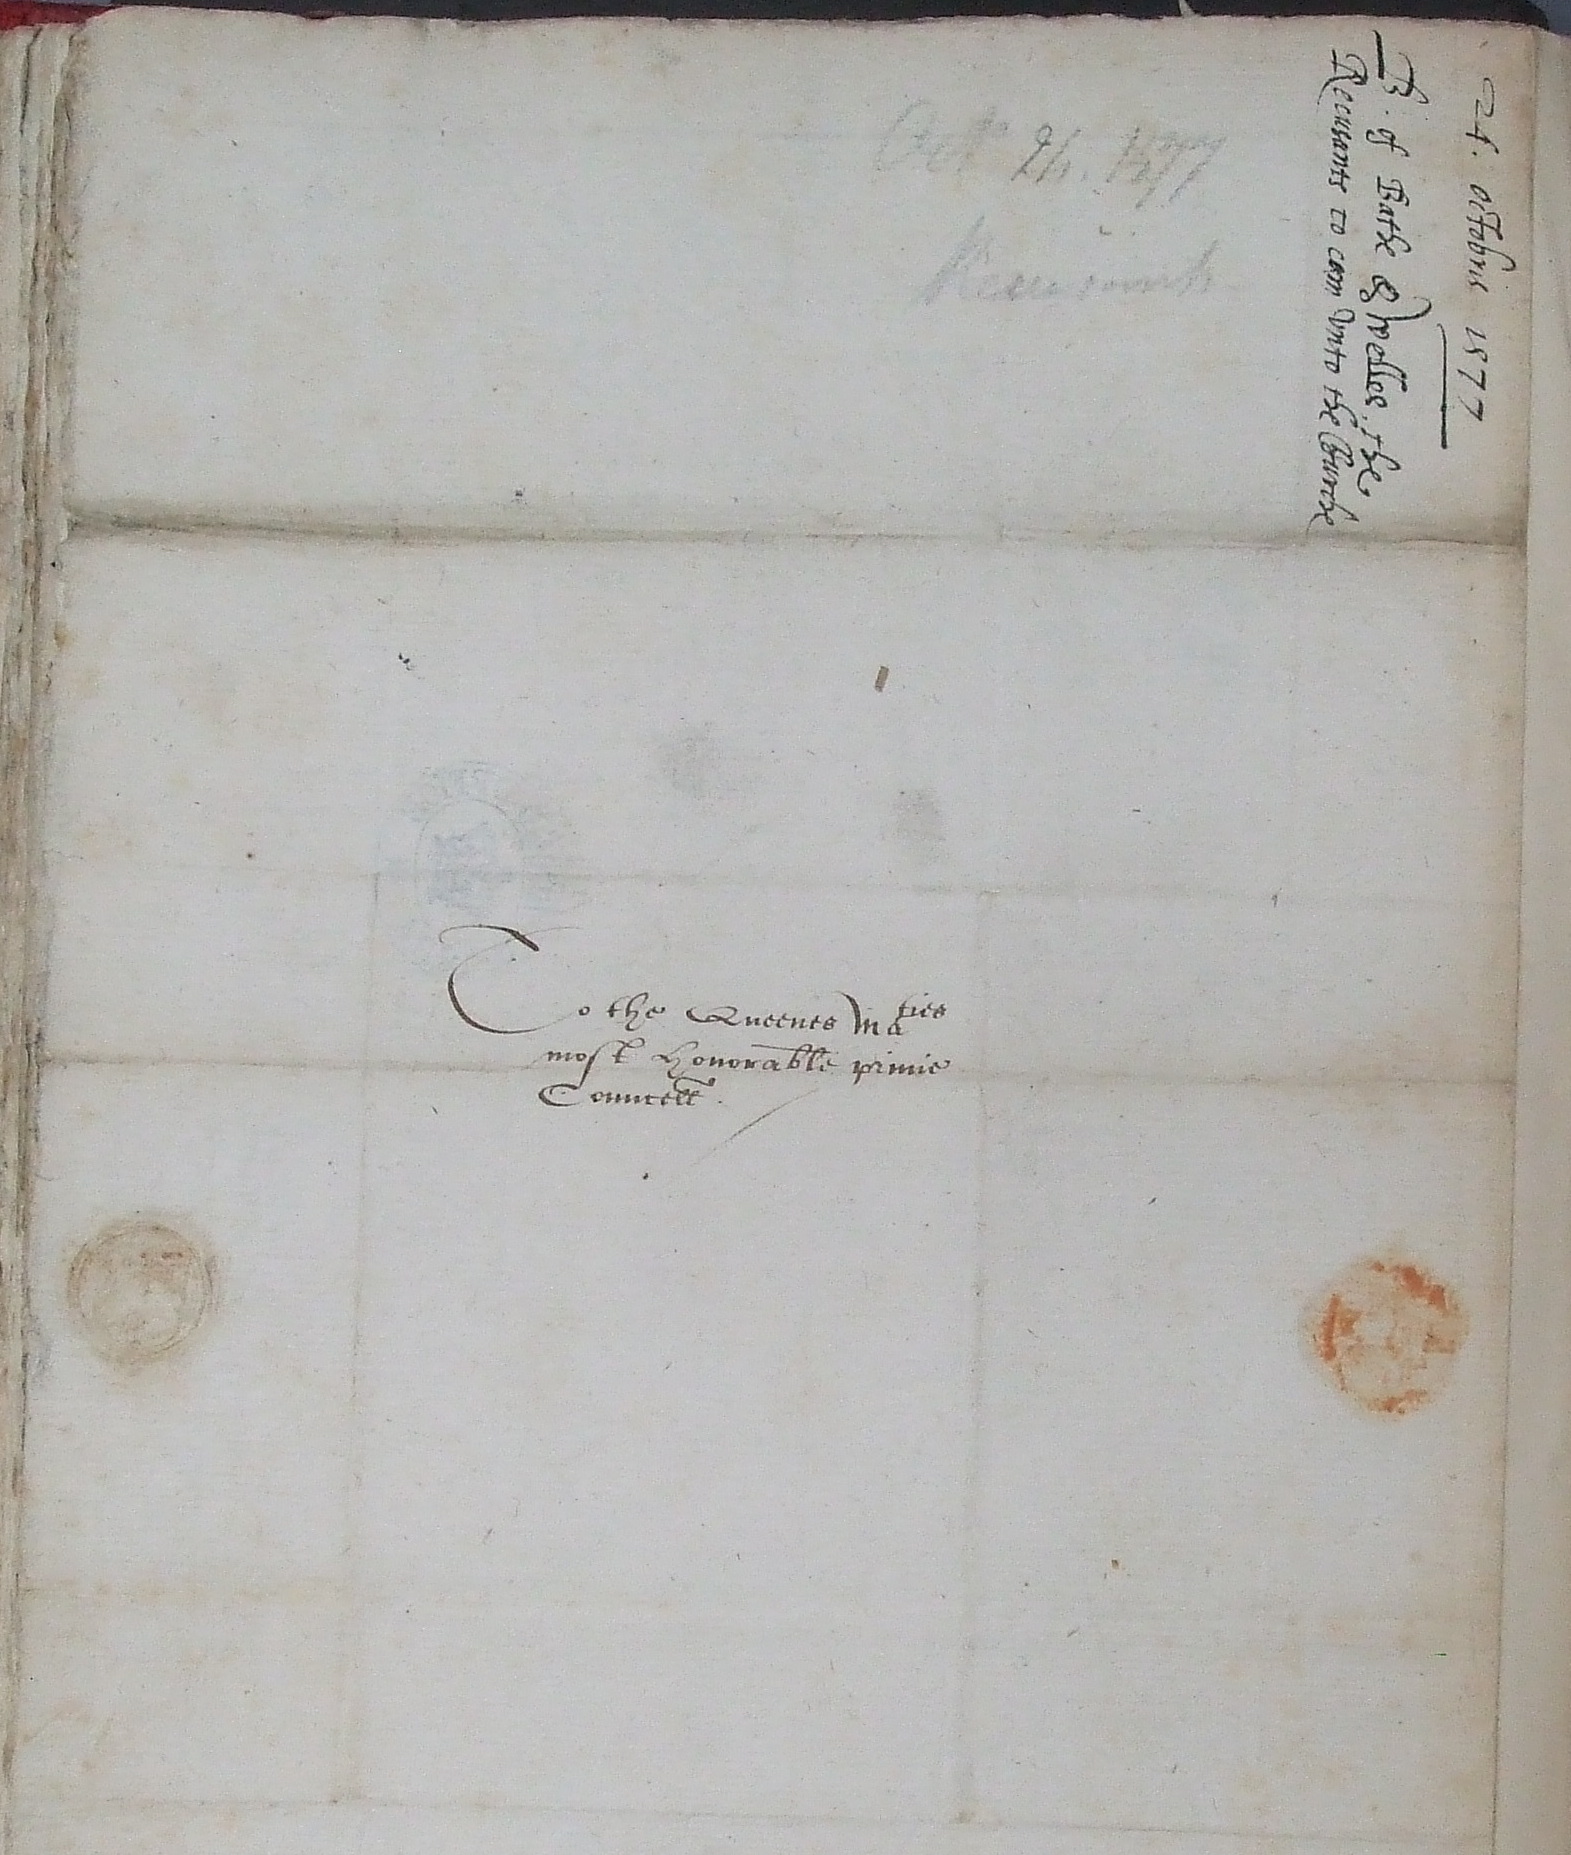 24. octobris 1577
B. of Bathe & welles. the
Recusants to com vnto the Churche
Octr 24. 1577
Recusants
To the Queenes Maties
most honorable privie
Councell.